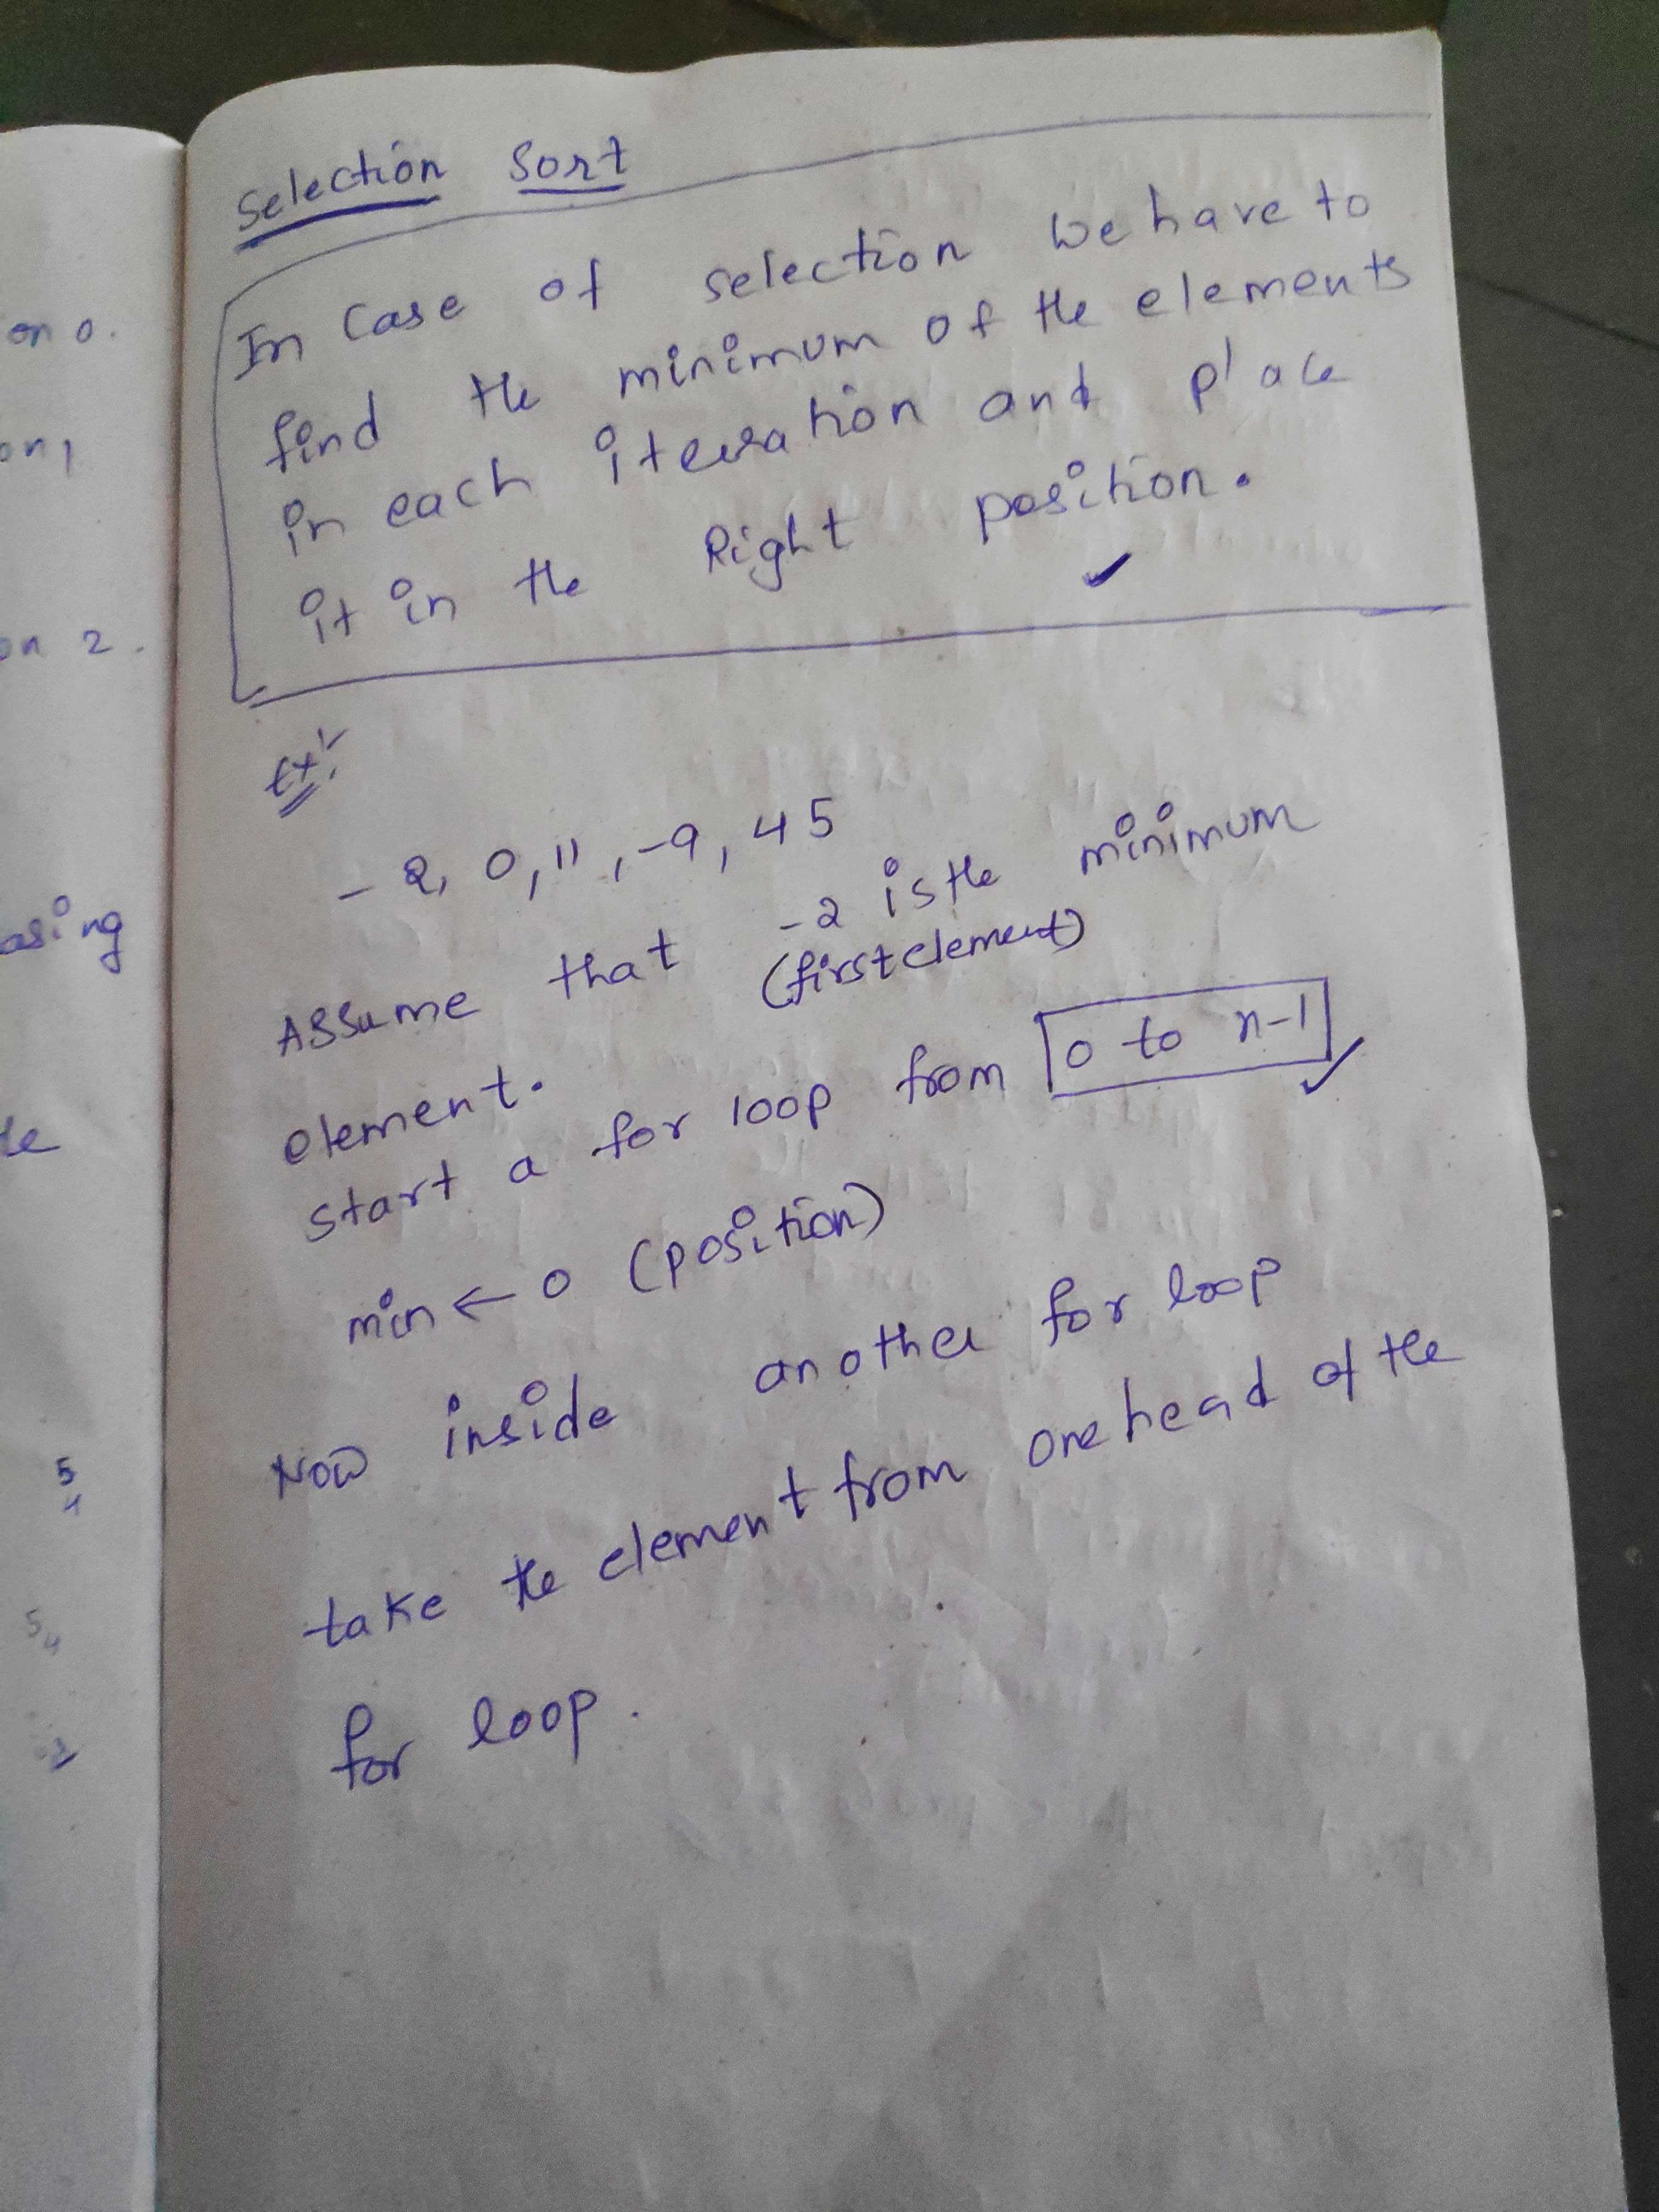 Selection Sort
In Case of selection we have to
find the minimum of the elements
in each iteration and place
it in the Right position.
Ex:-
-2, 0, 11, -9, 45
Assume that -2 is the minimum
(first element)
element.
Start a for loop from 0 to n-1
min ← 0 (position)
Now inside another for loop
take the element from one head of the
for loop.
on 0.
on 1
on 2.
asing
5
4
5
4